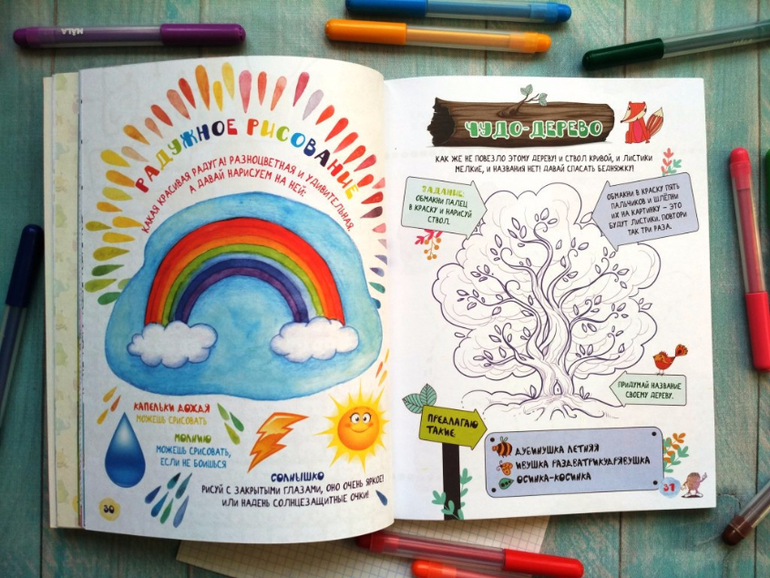 РАДУЖНОЕ РИСОВАНИЕ
КАКАЯ КРАСИВАЯ РАДУГА! РАЗНОЦВЕТНАЯ И УДИВИТЕЛЬНАЯ.
А ДАВАЙ НАРИСУЕМ НА НЕЙ:
КАПЕЛЬКИ ДОЖДЯ
МОЖЕШЬ СРИСОВАТЬ
МОЛНИЮ
МОЖЕШЬ СРИСОВАТЬ,
ЕСЛИ НЕ БОИШЬСЯ
СОЛНЫШКО
РИСУЙ С ЗАКРЫТЫМИ ГЛАЗАМИ, ОНО ОЧЕНЬ ЯРКОЕ!
ИЛИ НАДЕНЬ СОЛНЦЕЗАЩИТНЫЕ ОЧКИ!
30
ЧУДО-ДЕРЕВО
КАК ЖЕ НЕ ПОВЕЗЛО ЭТОМУ ДЕРЕВУ! И СТВОЛ КРИВОЙ, И ЛИСТИКИ
МЕЛКИЕ, И НАЗВАНИЯ НЕТ! ДАВАЙ СПАСАТЬ БЕДНЯЖКУ!
ЗАДАНИЕ:
ОБМАКНИ ПАЛЕЦ
В КРАСКУ И НАРИСУЙ
СТВОЛ.
ОБМАКНИ В КРАСКУ ПЯТЬ
ПАЛЬЧИКОВ И ШЛЁПНИ
ИХ НА КАРТИНКУ – ЭТО
БУДУТ ЛИСТИКИ. ПОВТОРИ
ТАК ТРИ РАЗА.
ПРИДУМАЙ НАЗВАНИЕ
СВОЕМУ ДЕРЕВУ.
ПРЕДЛАГАЮ
ТАКИЕ:
ДУБИНУШКА ЛЕТНЯЯ
ИВУШКА РАЗДВАТРИКУДРЯВУШКА
ОСИНКА-КОСИНКА
31